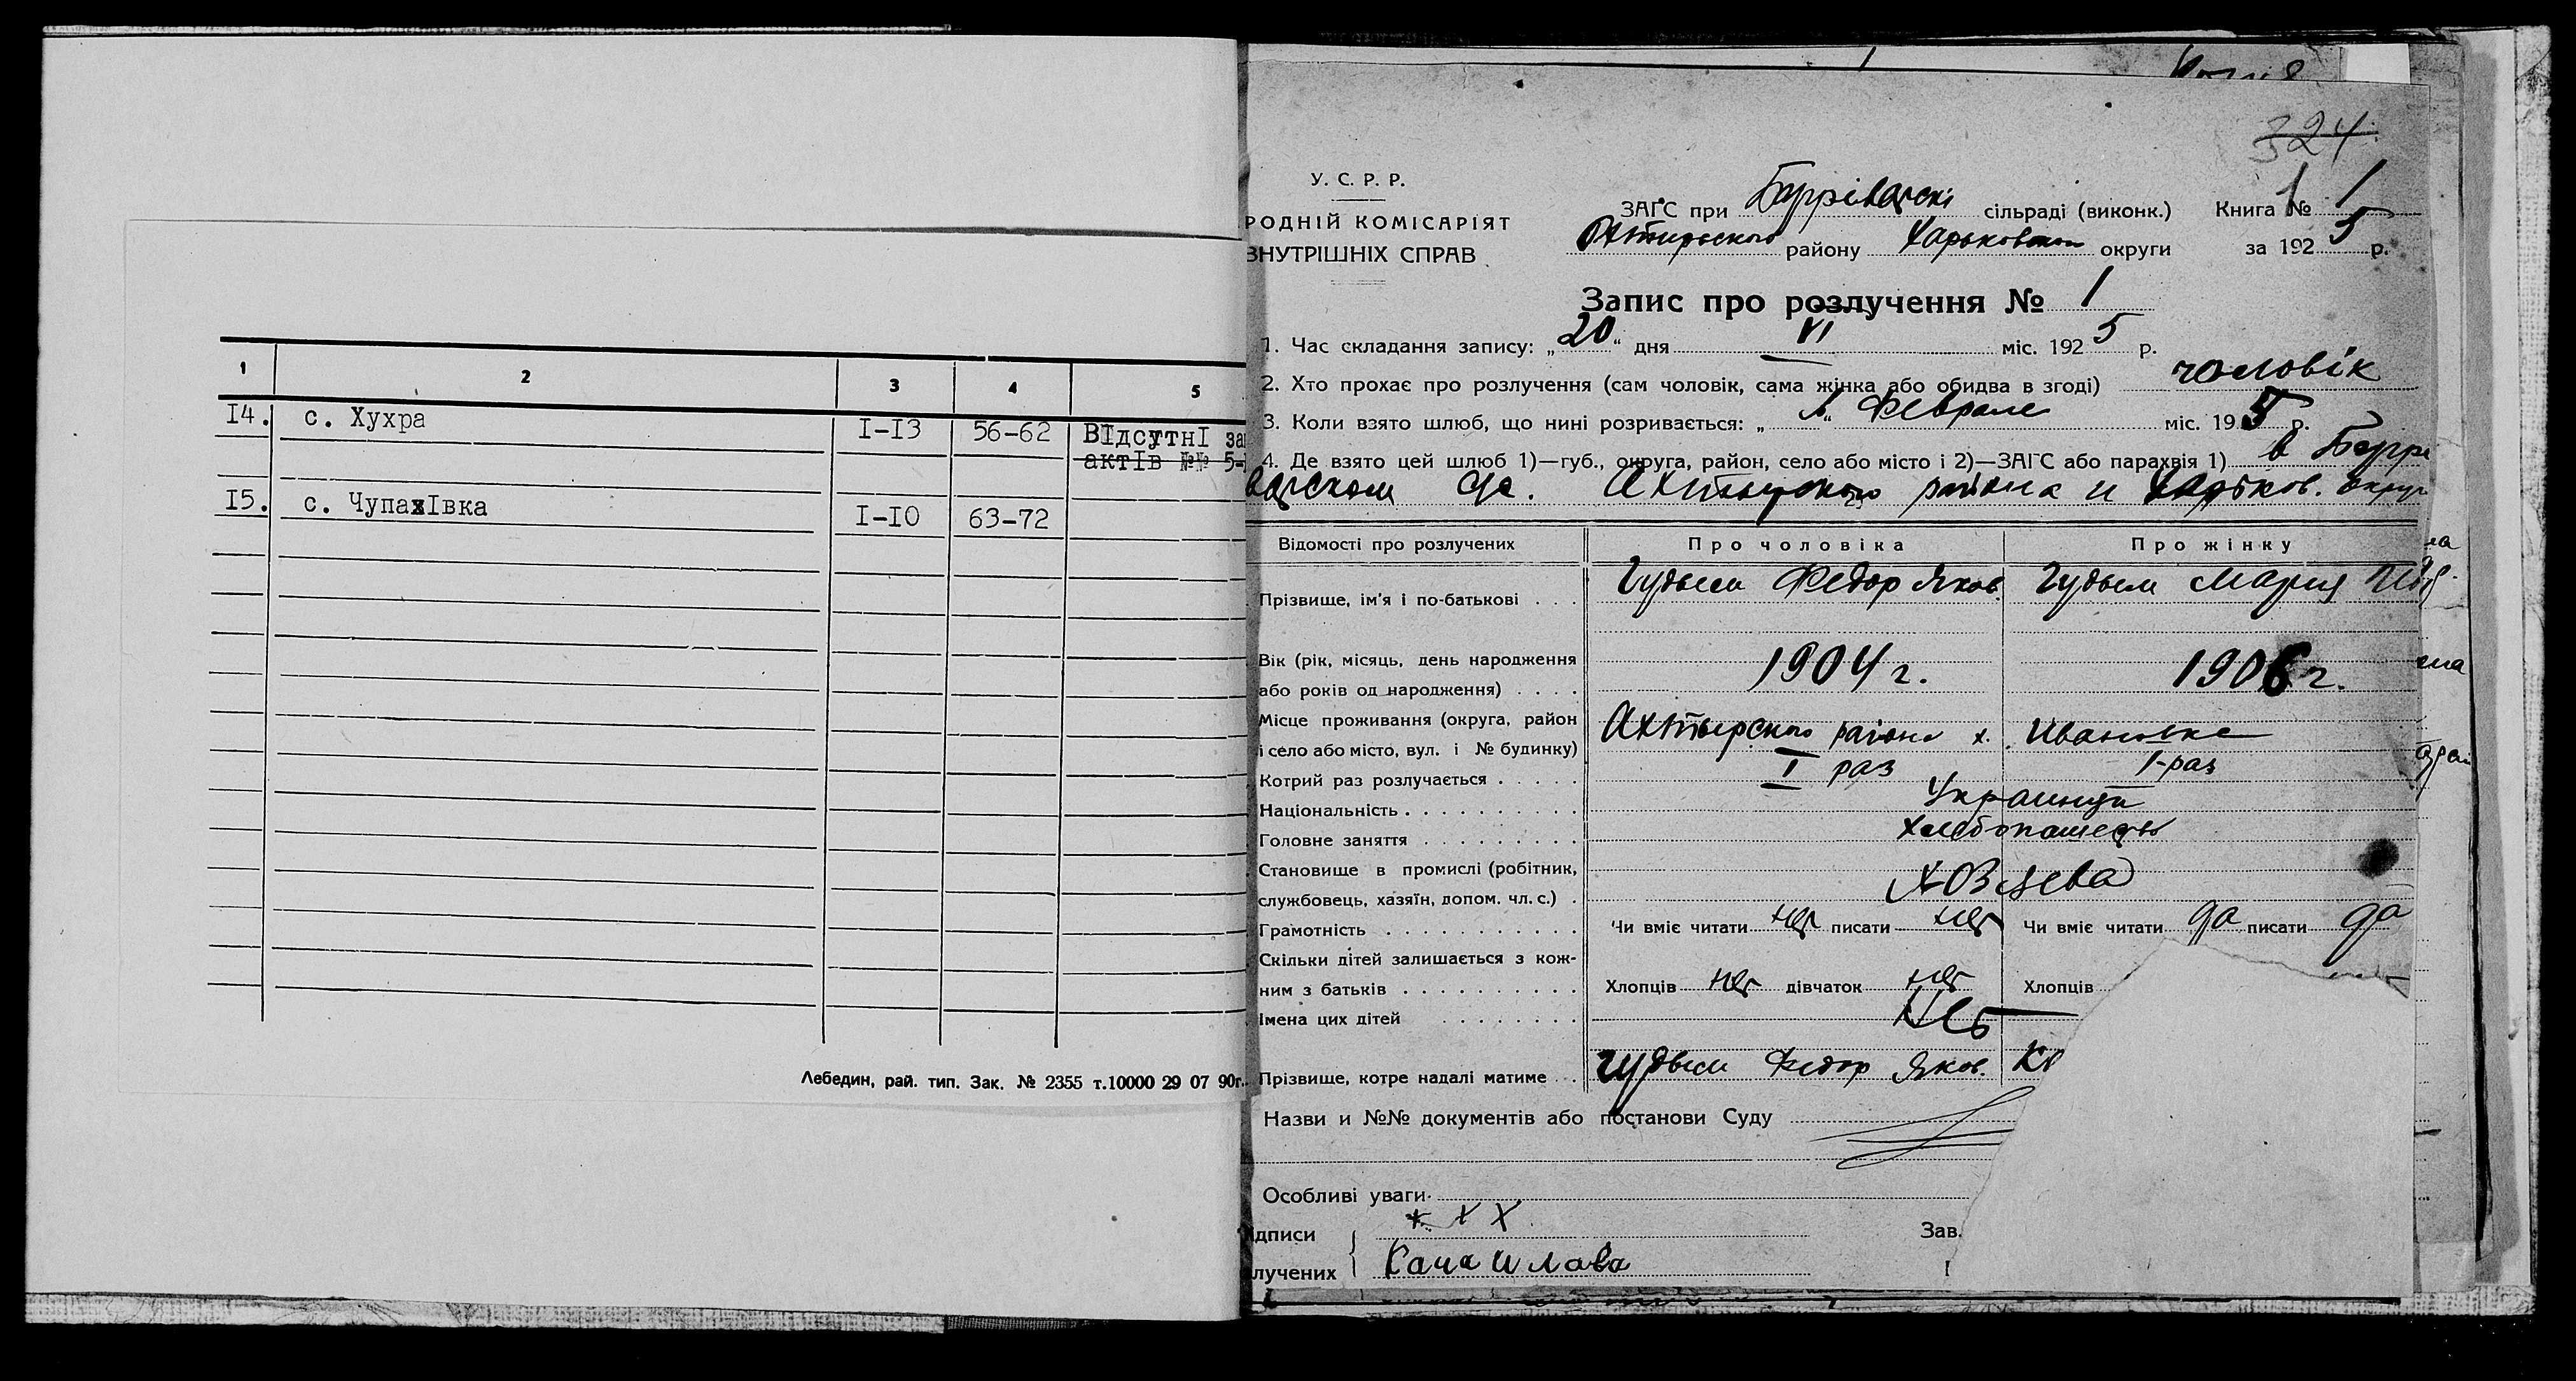 1 2 3 4 5
14. с. Хухра I-I3 56-62 ВІдсутнІ
актІв №№ 5-
15. с. ЧупахІвка I-I0 63-72
Лебедин, рай. тип. Зак. № 2355 т.10000 29 07 90г.
324
У. С. Р. Р.
РОДНІЙ КОМІСАРІЯТ
ВНУТРІШНІХ СПРАВ
ЗАГС при сільраді (виконк.) Книга № 1
району Харьковской округи за 1925 р.
Запис про розлучення № 1
1. Час складання запису: „20" дня VI міс. 1925 р.
2. Хто прохає про розлучення (сам чоловік, сама жінка або обидва в згоді) чоловік
3. Коли взято шлюб, що нині розривається: „ " Феврале міс. 195 р.
4. Де взято цей шлюб 1)—губ., округа, район, село або місто і 2)—ЗАГС або парахвія 1) в
Ахтырского района и Харьков. округ
Відомості про розлучених Про чоловіка Про жінку
Прізвище, ім'я і по-батькові . . . Гудым Федор Яков. Гудым Мария
Вік (рік, місяць, день народження
або років од народження) . . . . 1904 г. 1906 г.
Місце проживання (округа, район
і село або місто, вул. і № будинку) Ахтырского района х. Ивановке
Котрий раз розлучається . . . . . I раз I-раз
Національність . . . . . . . . . . Украинцы
Головне заняття . . . . . . . . . Хлебопашество
Становище в промислі (робітник,
службовець, хазяїн, допом. чл. с.) .
Грамотність . . . . . . . . . . . Чи вміє читати нет писати нет Чи вміє читати да писати да
Скільки дітей залишається з кож-
ним з батьків . . . . . . . . . . Хлопців нет дівчаток нет Хлопців
Імена цих дітей . . . . . . . . Нет
Прізвище, котре надалі матиме . . Гудым Федор Яков.
Назви и №№ документів або постанови Суду
Особливі уваги
дписи X X X Зав.
лучених